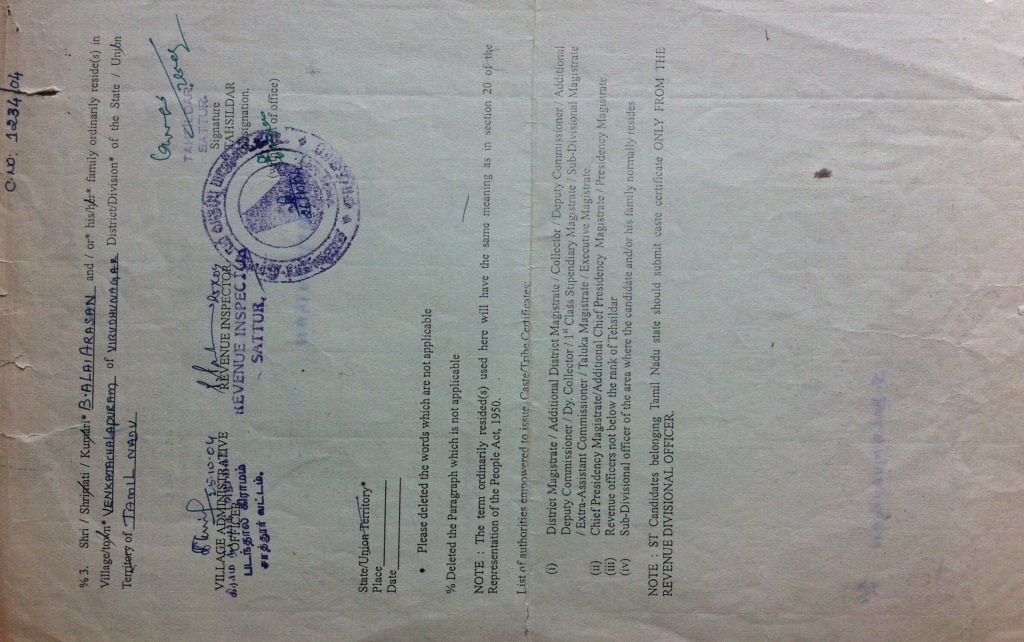 C.NO: 1234/04
% 3. Shri / Shrimati / Kumari* B.ALAIARASAN and / or* his/her* family ordinarily reside(s) in
Village/town* VENKATACHALAPURAM of VIRUDHUNAGAR District/Division* of the State / Union
Territory of TAMIL NADU
TAHSILDAR
SATTUR.
25-10-04
VILLAGE ADMINISTRATIVE
OFFICER
படந்தால் கிராமம்
சாத்தூர் வட்டம்.
REVENUE INSPECTOR
REVENUE INSPECTOR
SATTUR.
Signature
TAHSILDAR
Designation.
(with seal of office)
26/10/04
State/Union Territory*
Place
Date
• Please deleted the words which are not applicable
% Deleted the Paragraph which is not applicable
NOTE : The term ordinarily resided(s) used here will have the same meaning as in section 20 of the
Representation of the People Act, 1950.
List of authorities empowered to issue Caste/Tribe Certificates:
(i) District Magistrate / Additional District Magistrate / Collector / Deputy Commissioner / Additional
Deputy Commissioner / Dy. Collector / 1st Class Stipendiary Magistrate / Sub-Divisional Magistrate
/ Extra-Assistant Commissioner / Taluka Magistrate / Executive Magistrate.
(ii) Chief Presidency Magistrate/Additional Chief Presidency Magistrate / Presidency Magistrate
(iii) Revenue officers not below the rank of Tehsildar
(iv) Sub-Divisional officer of the area where the candidate and/or his family normally resides
NOTE : ST Candidates belonging Tamil Nadu state should submit caste certificate ONLY FROM THE
REVENUE DIVISIONAL OFFICER.